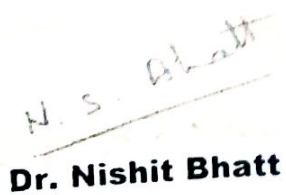 N. S. Bhatt
Dr. Nishit Bhatt